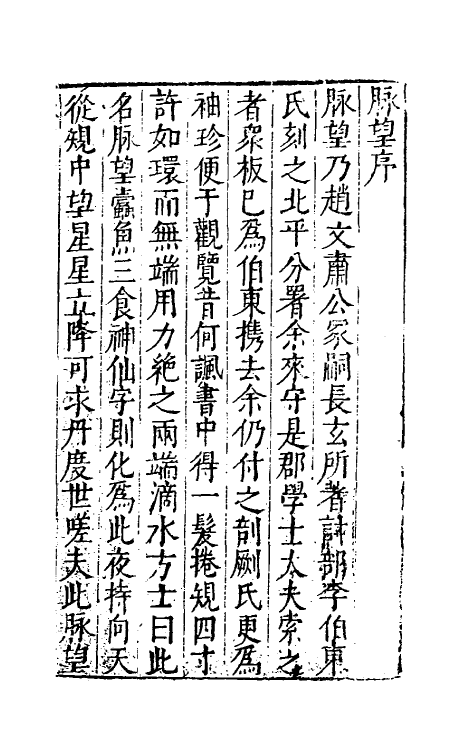 脉望序
脉望乃趙文肅公冢嗣長玄所著計部李伯東
氏刻之北平分署余來守是郡學士大夫索之
者衆板已為伯東携去余仍付之剞劂氏更為
袖珍便于觀覽昔何諷書中得一髮捲規四寸
許如環而無端用力絶之兩端滴水方士曰此
名脉望蠹魚三食神仙字則化為此夜持向天
從規中望星星立降可求丹度世嗟夫此脉望